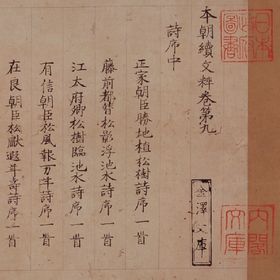 本朝續文粹卷第九
詩序中
正家朝臣勝地植松樹詩序一首
藤前都督松影浮池水詩序一首
江大府卿松樹臨池水詩序一首
有信朝臣松風報万年詩序一首
在良朝臣松献遐年壽詩序一首
金澤文庫
内閣文庫